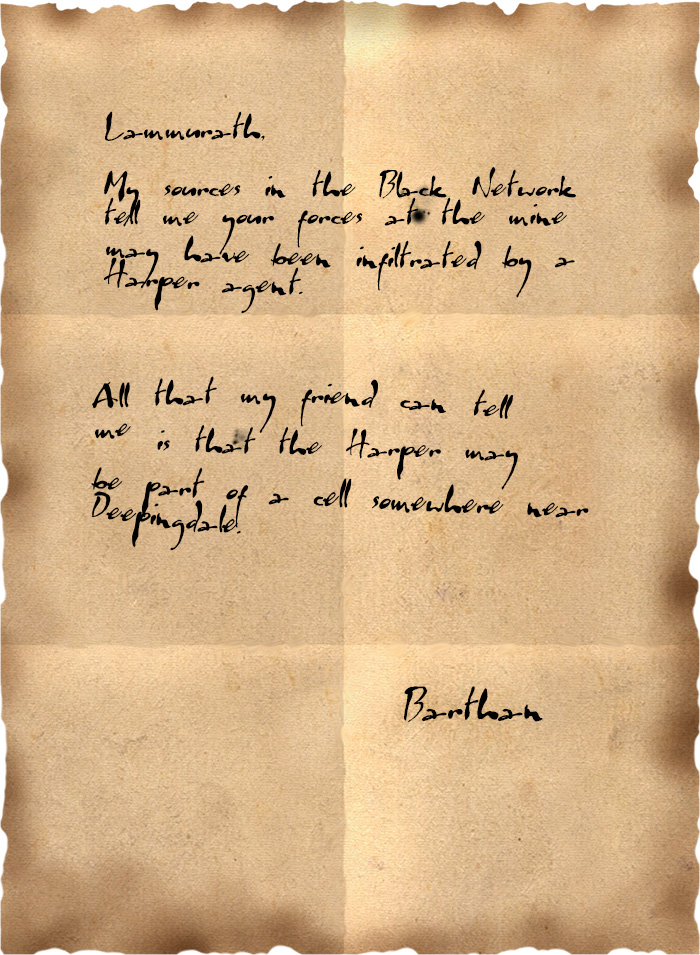 Lammurath,
My sources in the Black Network
tell me your forces at the mine
may have been infiltrated by a
Harper agent.
All that my friend can tell
me is that the Harper may
be part of a cell somewhere near
Deepingdale.
Barthan